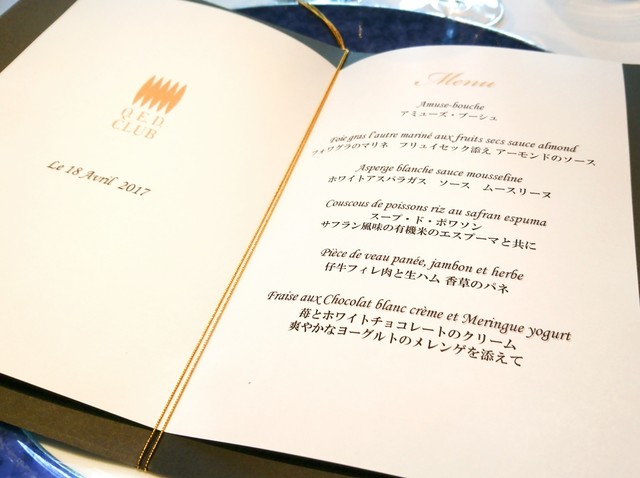 Q.E.D.
CLUB
Le 18 Avril 2017
Menu
Amuse-bouche
アミューズ・ブーシュ
Foie gras l'autre mariné aux fruits secs sauce almond
フォワグラのマリネ フリュイセック添え アーモンドのソース
Asperge blanche sauce mousseline
ホワイトアスパラガス ソース ムースリーヌ
Couscous de poissons riz au safran espuma
スープ・ド・ポワソン
サフラン風味の有機米のエスプーマと共に
Pièce de veau panée, jambon et herbe
仔牛フィレ肉と生ハム 香草のパネ
Fraise aux Chocolat blanc crème et Meringue yogurt
苺とホワイトチョコレートのクリーム
爽やかなヨーグルトのメレンゲを添えて